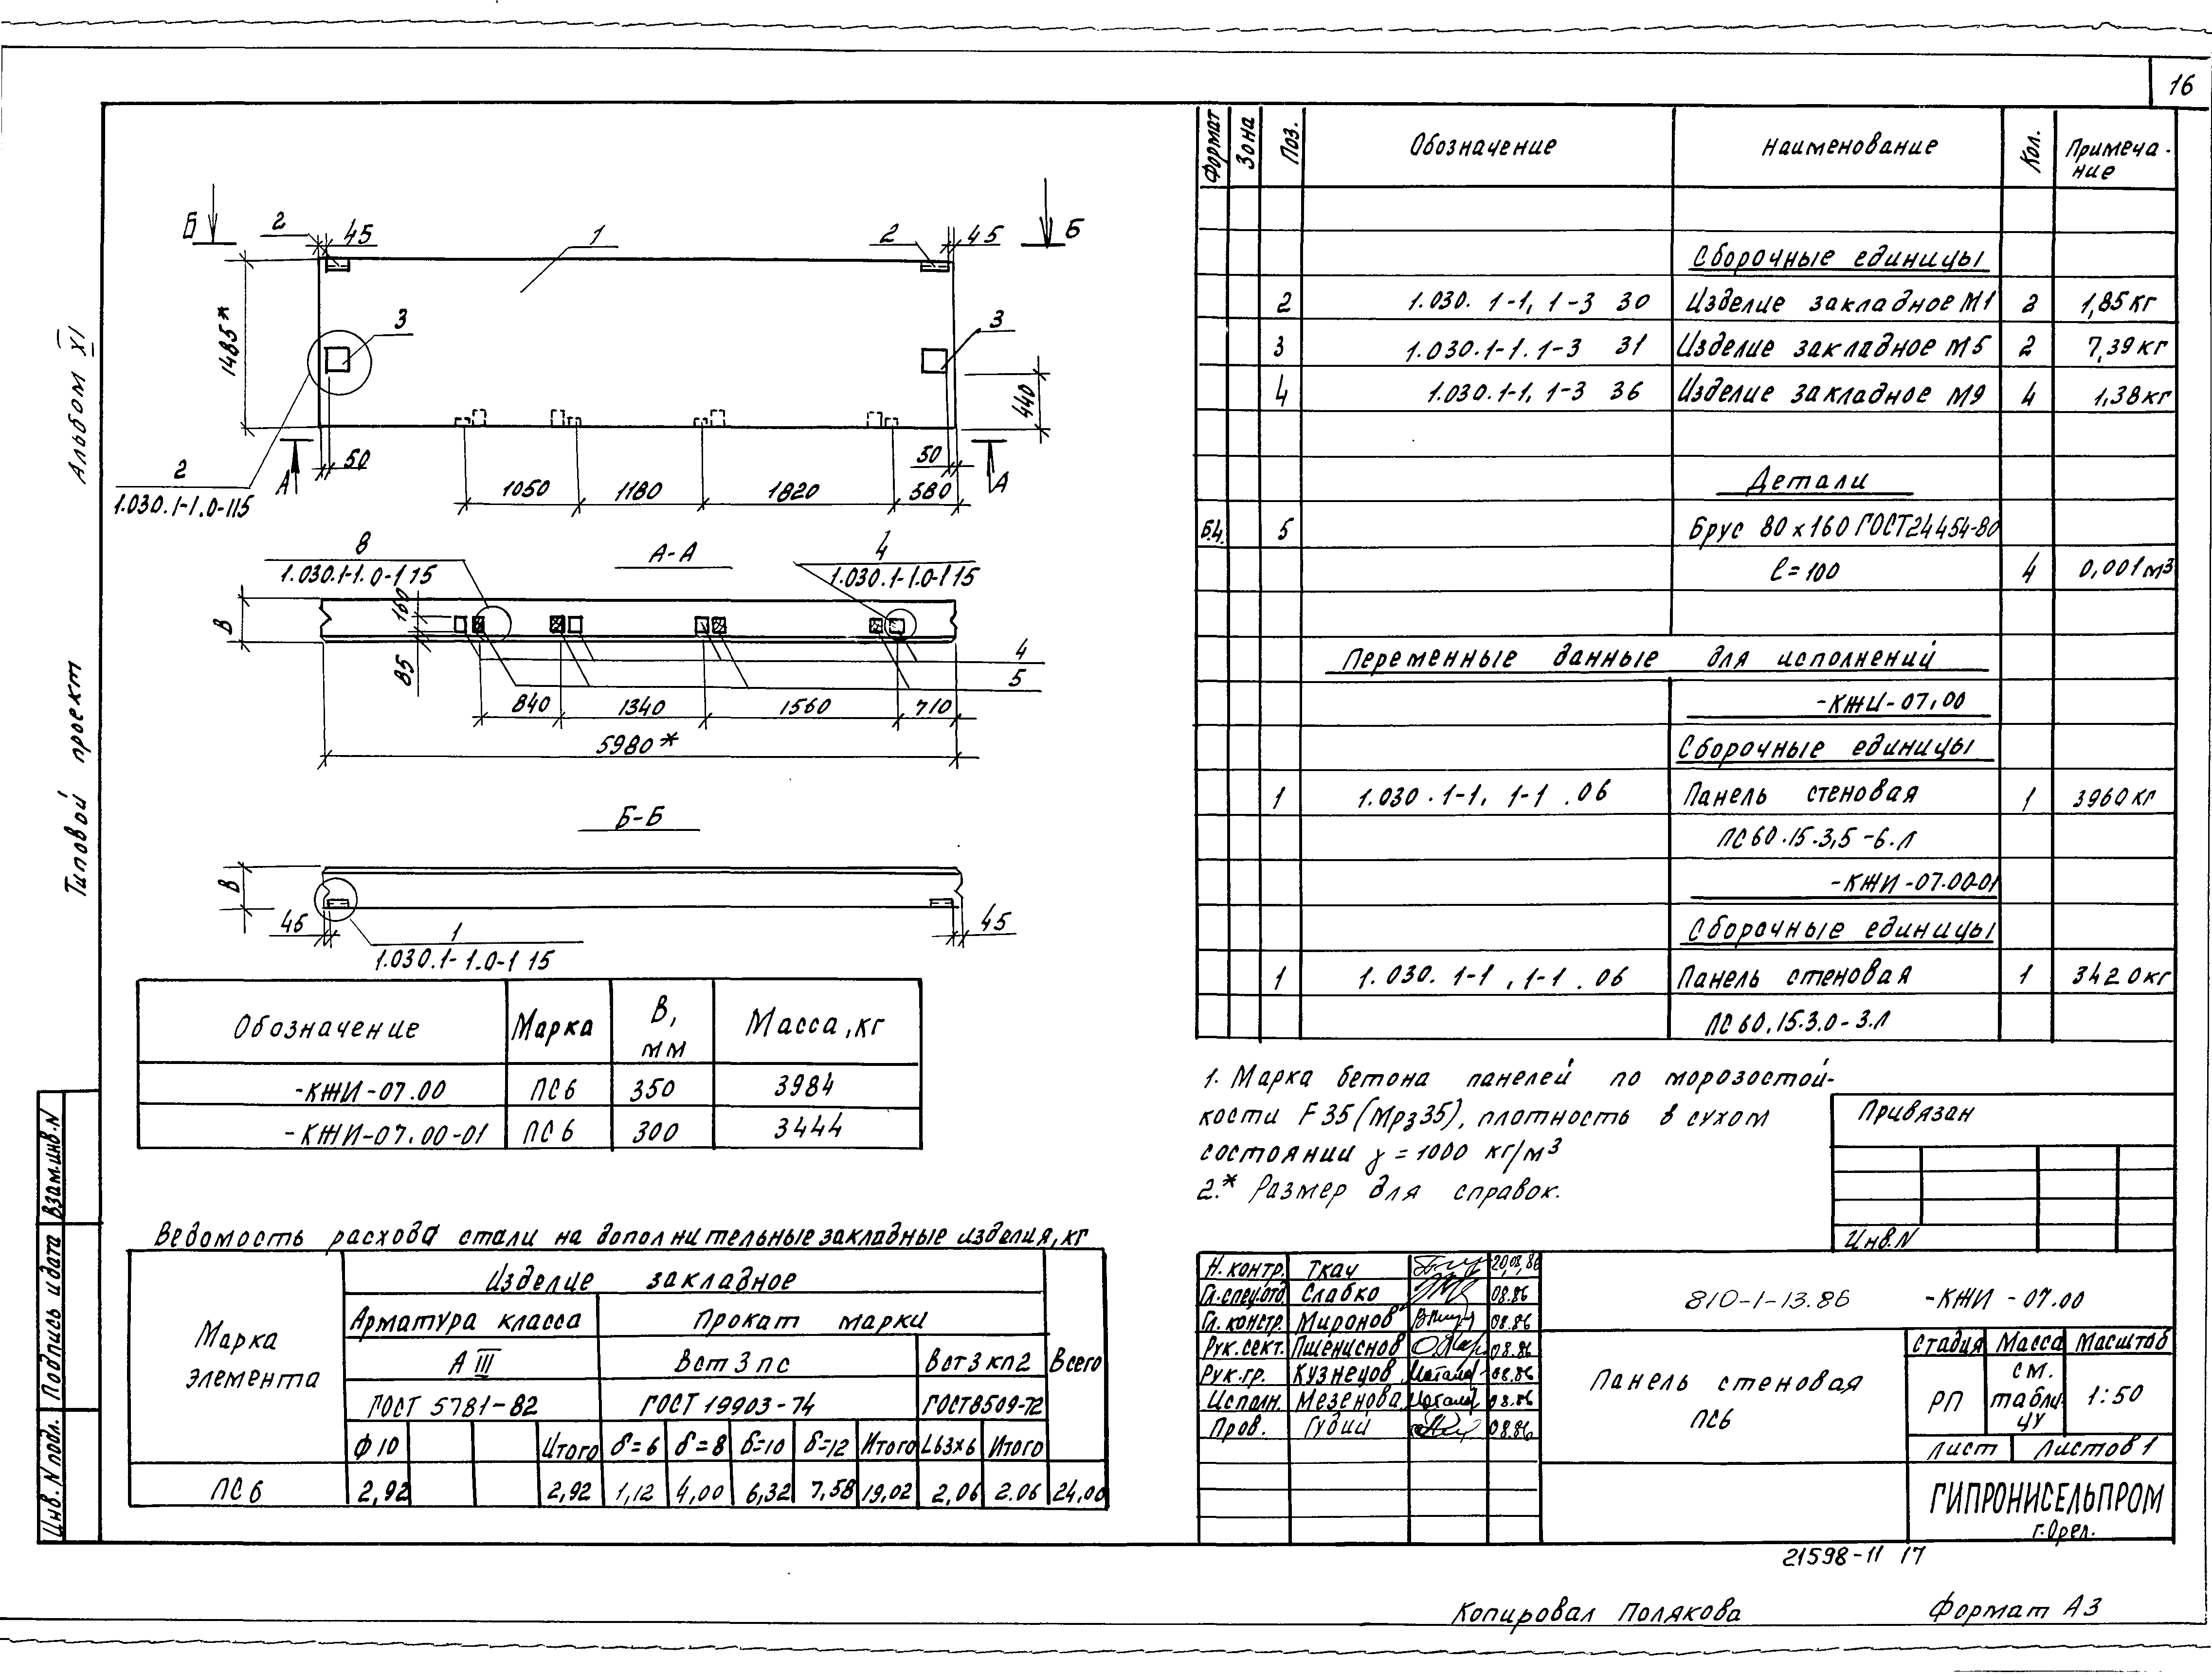 16
Альбом XI
Типовой проект
Взам.инв.N
Подпись и дата
Инв.N подл.
Б
2
45
1
2
45
Б
1485*
3
3
440
2
1.030.1-1.0-115
А
50
50
А
1050
1180
1820
580
8
1.030.1-1.0-1 15
А-А
4
1.030.1-1.0-1 15
В
160
85
4
5
840
1340
1560
710
5980*
Б-Б
В
45
1
1.030.1-1.0-1 15
45
Обозначение Марка В, мм Масса, кг
-КЖИ-07.00 ПС6 350 3984
-КЖИ-07.00-01 ПС6 300 3444
Ведомость расхода стали на дополнительные закладные изделия, кг
Марка элемента
Изделие закладное
Всего
Арматура класса Прокат марки
А III Вст 3 пс Вст3 кп2
ГОСТ 5781-82 ГОСТ 19903-74 ГОСТ8509-72
Ф10 Итого δ=6 δ=8 δ=10 δ=12 Итого L63x6 Итого
ПС6 2,92 2,92 1,12 4,00 6,32 7,58 19,02 2,06 2.06 24,00
Формат Зона Поз. Обозначение Наименование Кол. Примеча-
ние
Сборочные единицы
2 1.030. 1-1, 1-3 30 Изделие закладное М1 2 1,85кг
3 1.030.1-1. 1-3 31 Изделие закладное М5 2 7,39кг
4 1.030.1-1, 1-3 36 Изделие закладное М9 4 1,38кг
Детали
Б.4. 5 Брус 80x160 ГОСТ24454-80
ℓ=100 4 0,001м3
Переменные данные для исполнений
-КЖИ-07.00
Сборочные единицы
1 1.030.1-1, 1-1 .06 Панель стеновая 1 3960кг
ПС60.15.3,5-6.Л
-КЖИ-07.00-01
Сборочные единицы
1 1.030. 1-1, 1-1 .06 Панель стеновая 1 3420кг
ПС60.15.3.0-3.Л
1. Марка бетона панелей по морозостой-
кости F35 (Мрз35), плотность в сухом
состоянии γ=1000 кг/м3
2.* Размер для справок.
Привязан
Инв.N
Н.контр. Ткач 20.08.86
Гл.спец.отд. Слабко 08.86
Гл. констр. Миронов 08.86
Рук.сект. Пшениснов 08.86
Рук.гр. Кузнецов 08.86
Исполн. Мезенова 08.86
Пров. Гудий 08.86
810-1-13.86 -КЖИ-07.00
Панель стеновая
ПС6
Стадия Масса Масштаб
РП см. табли-
цу 1:50
Лист Листов 1
ГИПРОНИСЕЛЬПРОМ
г.Орел.
21598-11 17
Копировал Полякова Формат А3